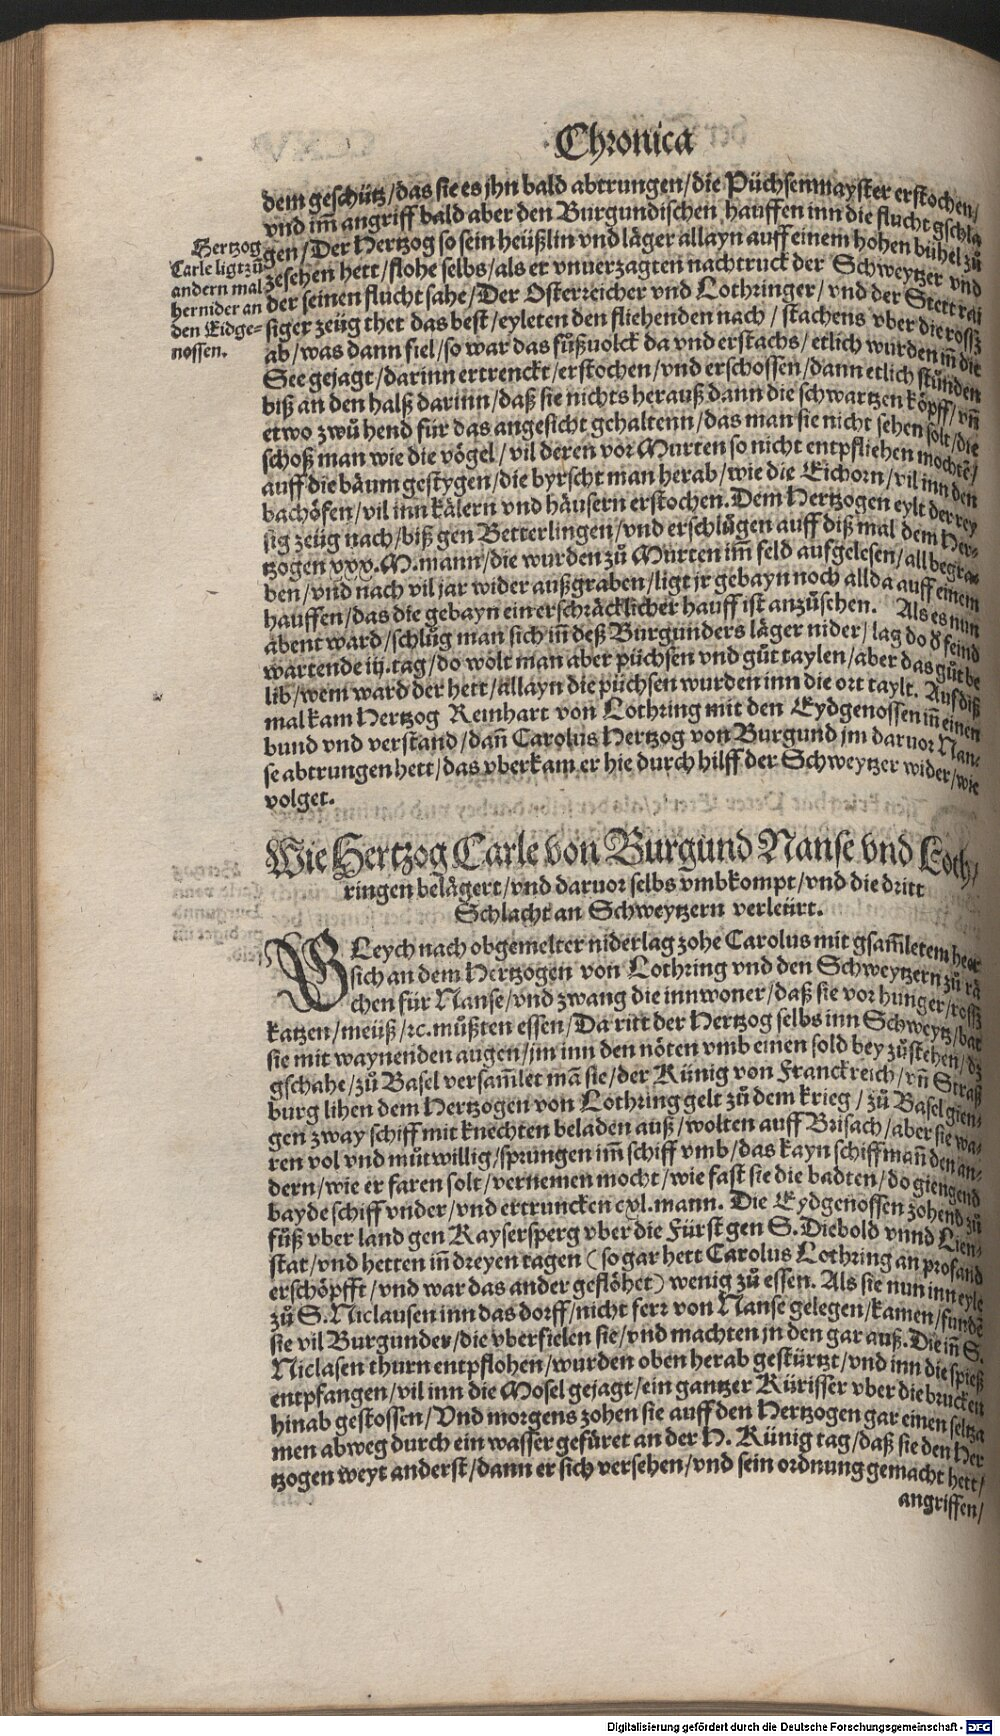 Chronica
dem geschütz/das sie es jhn bald abtrungen/die Püchsenmayster erstochen/
vnd im̃ angriff bald aber den Burgundischen hauffen inn die flucht gschla
gen/Der Hertzog so sein heüßlin vnd läger allayn auff einem hohen bühel zů
zesehen hett/flohe selbs/als er vnuerzagten nachtruck der Schweytzer vnd
der seinen flucht sahe/Der Osterreicher vnd Lothringer/vnd der Stett rai
siger zeüg thet das best/eyleten den fliehenden nach/stachens vber die rossz
ab/was dann fiel/so war das fůßuolck da vnd erstachs/etlich wurden iñ die
See gejagt/darinn ertrenckt/erstochen/vnd erschossen/dann etlich stůnden
biß an den halß darinn/daß sie nichts herauß dann die schwartzen köpff/vñ
etwo zwů hend für das angesicht gehaltenn/das man sie nicht sehen solt/die
schoß man wie die vögel/vil deren vor Murten so nicht entpfliehen mochtẽ/
auff die bäum gestygen/die byrscht man herab/wie die Eichorn/vil inn den
bachöfen/vil inn kälern vnd häusern erstochen. Dem Hertzogen eylt der rey
sig zeüg nach/biß gen Betterlingen/vnd erschlůgen auff diß mal dem Her-
tzogen xxx. M. mann/die wurden zů Murten im̃ feld aufgelesen/all begra-
ben/vnd nach vil jar wider außgraben/ligt jr gebayn noch allda auff einem
hauffen/das die gebayn ein erschräcklicher hauff ist anzůsehen. Als es nun
abent ward/schlůg man sich iñ deß Burgunders läger nider/lag do d̕ feind
wartende iij. tag/do wolt man aber püchsen vnd gůt taylen/aber das gůt be
lib/wem ward der hett/allayn die püchsen wurden inn die ort taylt. Auf diß
mal kam Hertzog Reinhart von Lothring mit den Eydgenossen iñ einen
bund vnd verstand/dañ Carolus Hertzog von Burgund jm daruor Nan-
se abtrungen hett/das vberkam er hie durch hilff der Schweytzer wider/wie
volget.
Hertzog
Carle ligt zů
andern mal
hernider an
den Eidge-
nossen.
Wie Hertzog Carle von Burgund Nanse vnd Loth/
ringen belägert/vnd daruor selbs vmbkompt/vnd die dritt
Schlacht an Schweytzern verleürt.
GLeych nach obgemelter niderlag zohe Carolus mit gsam̃letem heer
sich an dem Hertzogen von Lothring vnd den Schweytzern zů rä
chen für Nanse/vnd zwang die innwoner/daß sie vor hunger/rossz
katzen/meüß/ꝛc. můßten essen/Da ritt der Hertzog selbs inn Schweytz/bat
sie mit waynenden augen/jm inn den nöten vmb einen sold bey zůstehen/dz
gschahe/zů Basel versam̃let mã sie/der Künig von Franckreich/vñ Straß
burg lihen dem Hertzogen von Lothring gelt zů dem krieg/zů Basel gien-
gen zway schiff mit knechten beladen auß/wolten auff Brisach/aber sie wa-
ren vol vnd můtwillig/sprungen im̃ schiff vmb/das kayn schiffmañ den an-
dern/wie er faren solt/vernemen mocht/wie fast sie die badten/do giengend
bayde schiff vnder/vnd ertruncken cxl. mann. Die Eydgenossen zohend zů
fůß vber land gen Kaysersperg vber die Fürst gen S. Diebold vnnd Lien-
stat/vnd hetten iñ dreyen tagen (so gar hett Carolus Lothring an profand
erschöpfft/vnd war das ander geflöhet) wenig zů essen. Als sie nun inn eyle
zů S. Niclausen inn das dorff/nicht ferr von Nanse gelegen/kamen/fundẽ
sie vil Burgunder/die vberfielen sie/vnd machten jn den gar auß. Die iñ S.
Niclasen thurn entpflohen/wurden oben herab gestürtzt/vnd inn die spieß
entpfangen/vil inn die Mosel gejagt/ein gantzer Kürisser vber die brucken
hinab gestossen/Vnd morgens zohen sie auff den Hertzogen gar einen seltza
men abweg durch ein wasser gefüret an der H. Künig tag/daß sie den Her
tzogen weyt anderst/dann er sich versehen/vnd sein ordnung gemacht hett/
angriffen/
Digitalisierung gefördert durch die Deutsche Forschungsgemeinschaft - DFG